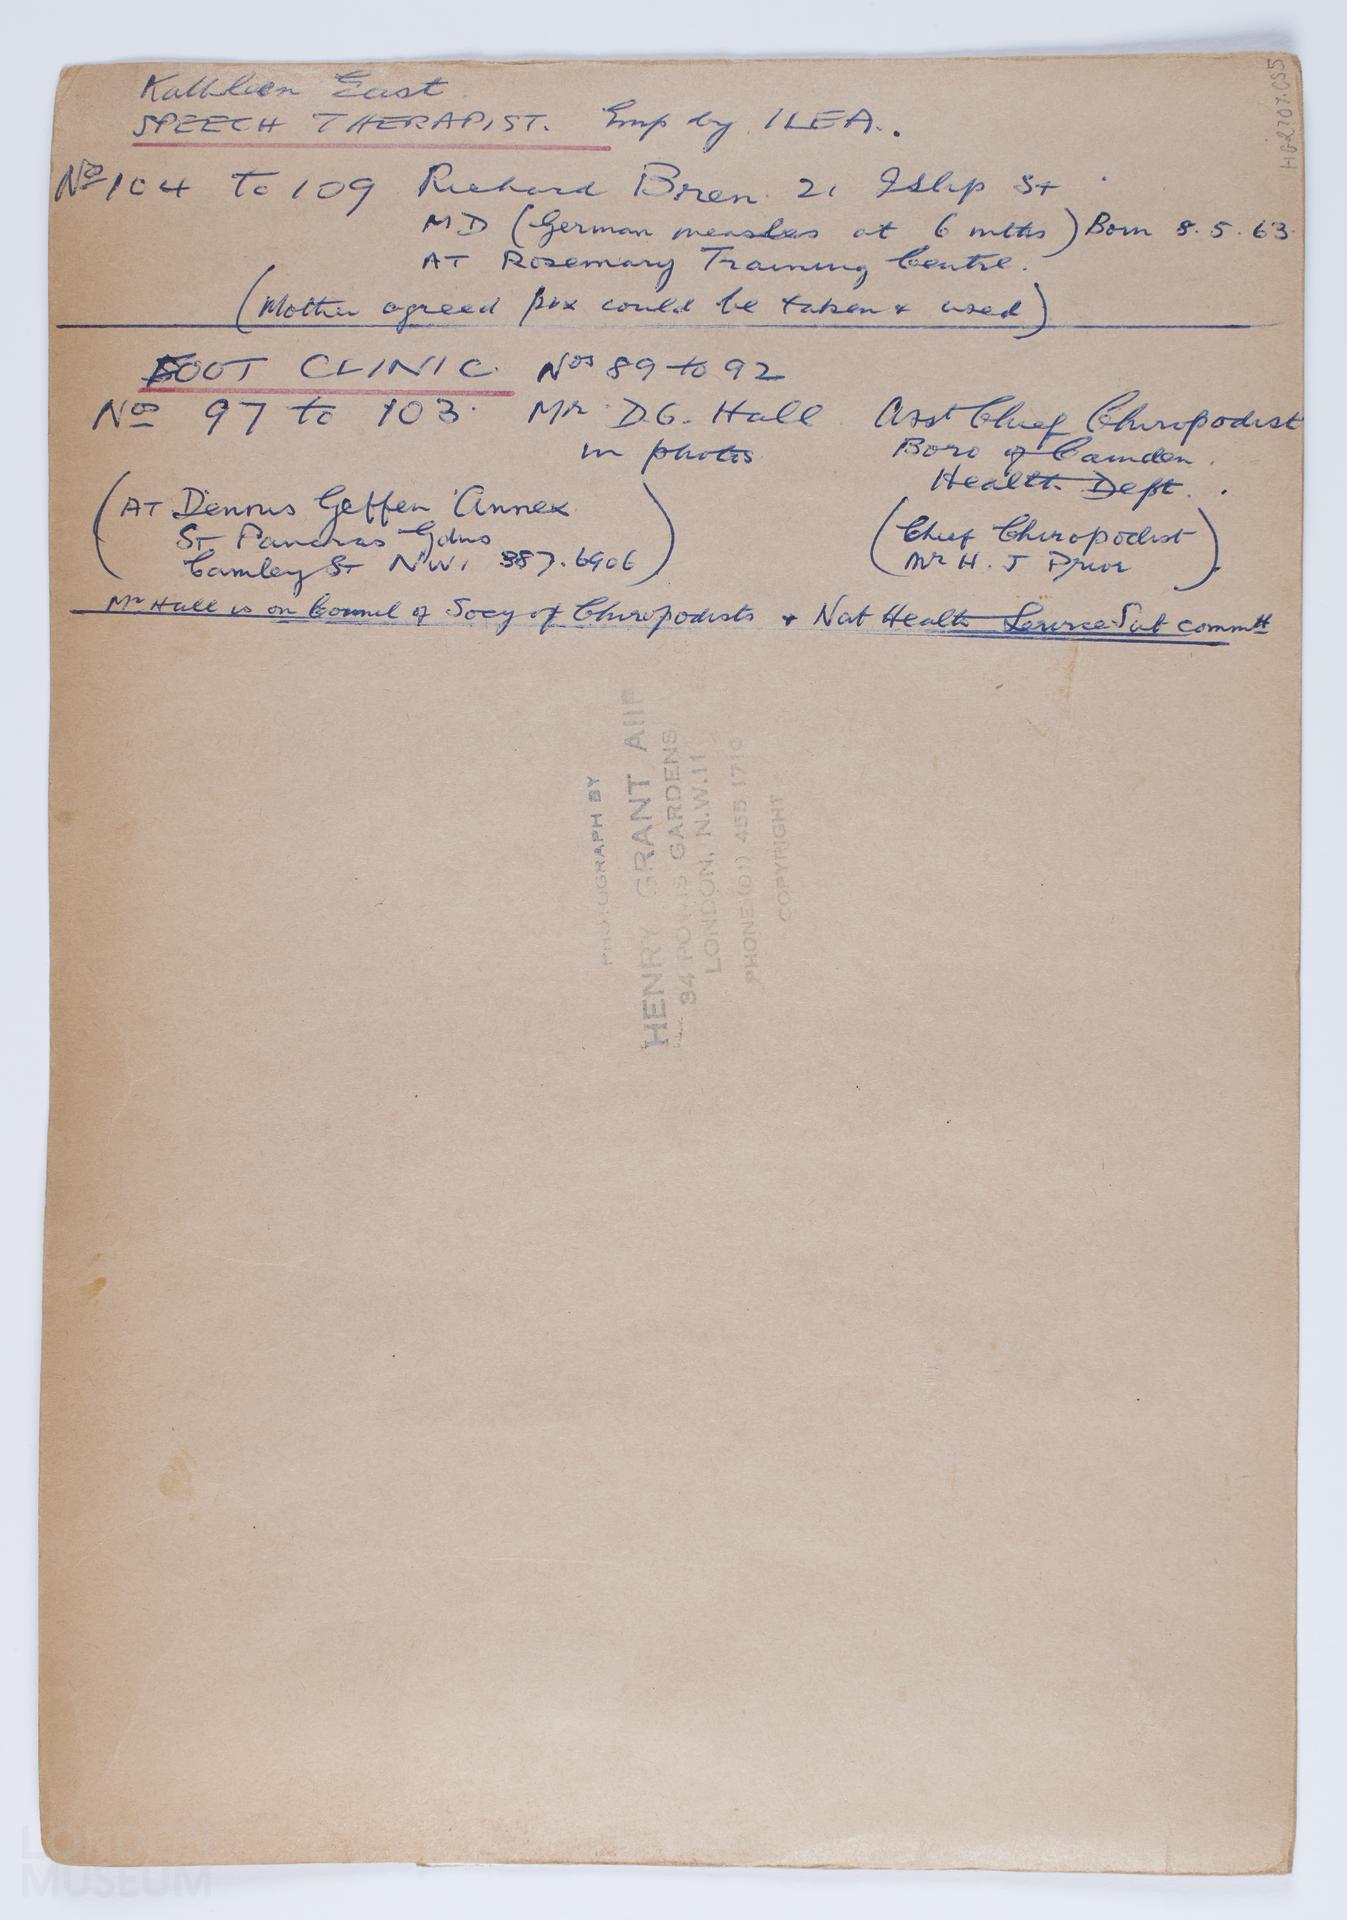 Kathleen East
SPEECH THERAPIST. Emp by ILEA.
Nº 104 to 109 Richard Bren 21 Islip St
MD (German measles at 6 mths) Born 8.5.63
AT Rosemary Training Centre.
(Mother agreed pix could be taken & used)
FOOT CLINIC Nos 89 to 92
Nos 97 to 103. Mr D.G. Hall Asst Chief Chiropodist
in photos Boro of Camden.
Health Dept.
(AT Dennis Geffen Annex
St Pancras Gdns
Camley St NW1 387.6906)
(Chief Chiropodist
Mr H. J Prior)
Mr Hall is on Council of Socy of Chiropodists & Nat Health Service Sub commtt
HG2707.CS5
PHOTOGRAPH BY
HENRY GRANT AIIP
34 POWIS GARDENS
LONDON, N.W.11
PHONE (01) 455 1710
COPYRIGHT
LONDON
MUSEUM